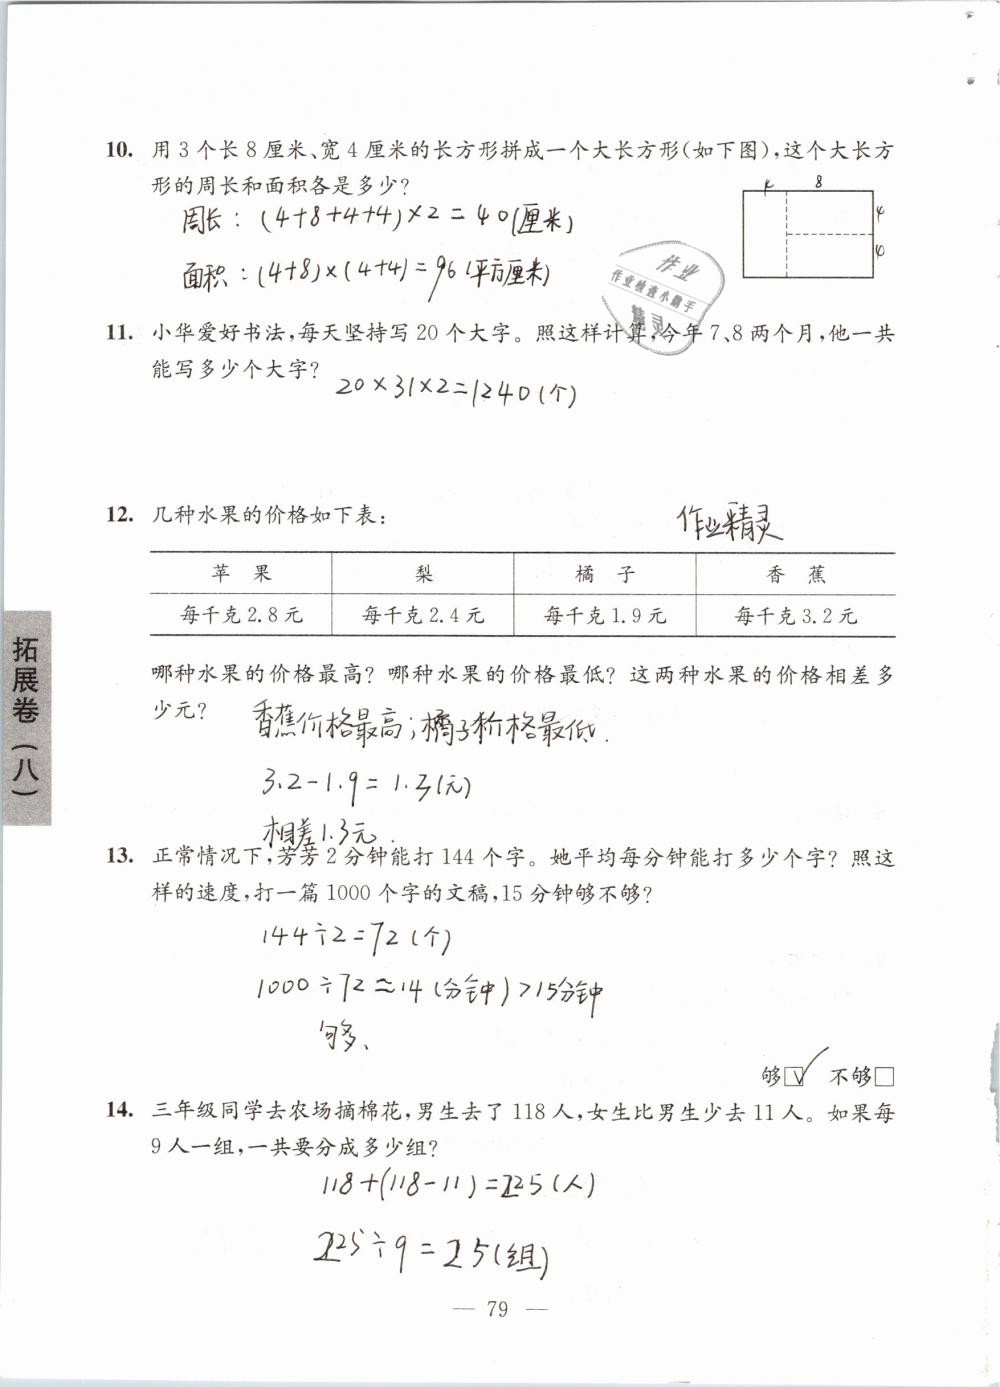 10. 用3个长8厘米、宽4厘米的长方形拼成一个大长方形(如下图),这个大长方
形的周长和面积各是多少?
4 8
周长:(4+8+4+4)×2=40(厘米)
4
面积:(4+8)×(4+4)=96(平方厘米)
4
作业
作业检查小帮手
精灵
11. 小华爱好书法,每天坚持写20个大字。照这样计算,今年7、8两个月,他一共
能写多少个大字?
20×31×2=1240(个)
12. 几种水果的价格如下表:
作业精灵
苹果 梨 橘子 香蕉
每千克2.8元 每千克2.4元 每千克1.9元 每千克3.2元
哪种水果的价格最高?哪种水果的价格最低?这两种水果的价格相差多
少元?
香蕉价格最高;橘子价格最低.
3.2-1.9=1.3(元)
相差1.3元.
13. 正常情况下,芳芳2分钟能打144个字。她平均每分钟能打多少个字?照这
样的速度,打一篇1000个字的文稿,15分钟够不够?
144÷2=72(个)
1000÷72≈14(分钟)>15分钟
够、
够☑ 不够□
14. 三年级同学去农场摘棉花,男生去了118人,女生比男生少去11人。如果每
9人一组,一共要分成多少组?
118+(118-11)=225(人)
225÷9=25(组)
— 79 —
拓展卷(八)